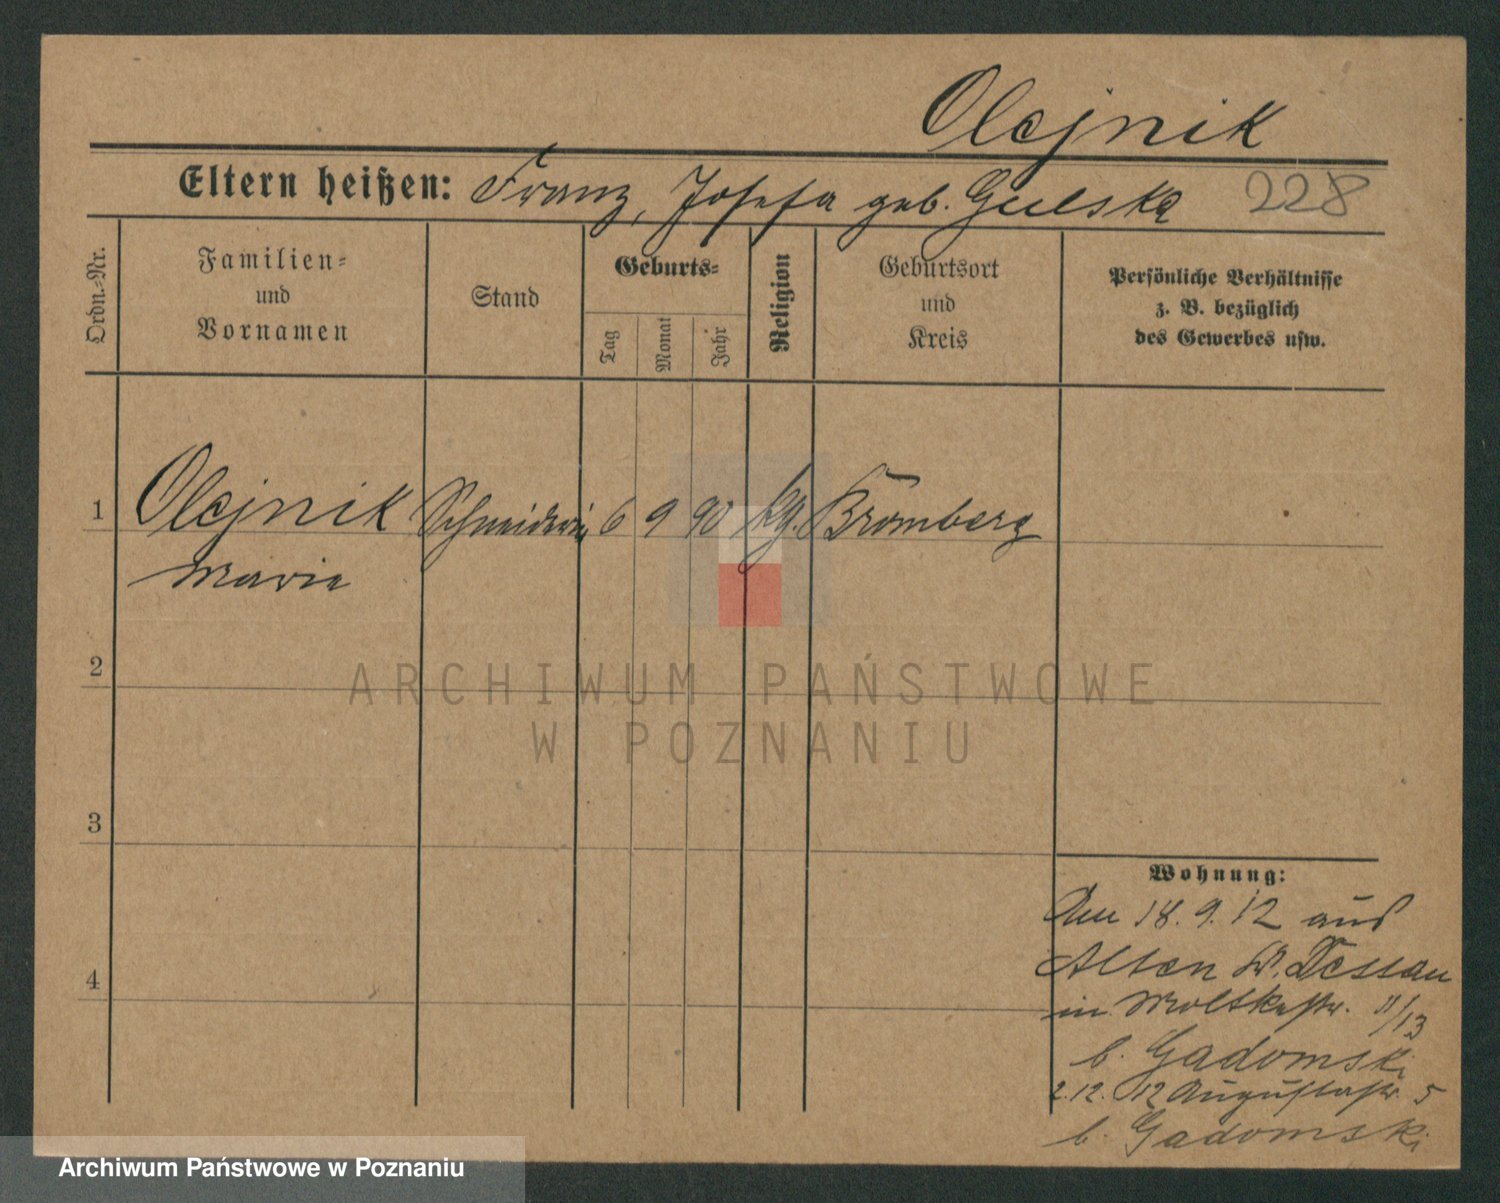 Olejnik
Eltern heißen: Franz, Josefa geb. Gulska 228
Ordn.-Nr.
Familien-
und
Vornamen
Stand
Geburts-
Tag
Monat
Jahr
Religion
Geburtsort
und
Kreis
Persönliche Verhältnisse
z. B. bezüglich
des Gewerbes usw.
1 Olejnik Schneiderin 6 9 90 kg. Bromberg
Marie
2
ARCHIWUM PAŃSTWOWE
W POZNANIU
3
4
Wohnung:
Am 18.9.12 aus
Alten Kr. Dessau
in Moltkestr. 11/13
b. Gadomski
2.12.12 Augustastr. 5
b. Gadomski
Archiwum Państwowe w Poznaniu